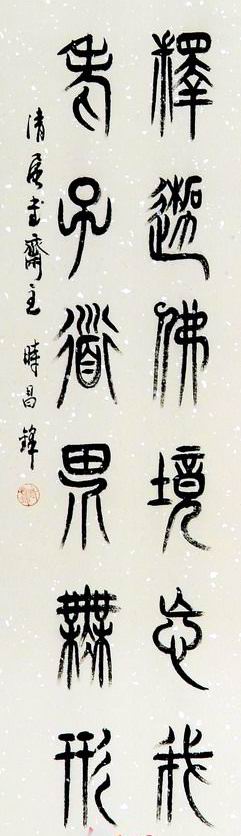 釋迦佛境忘我
老子道界無形
清居書齋主 時昌鋒